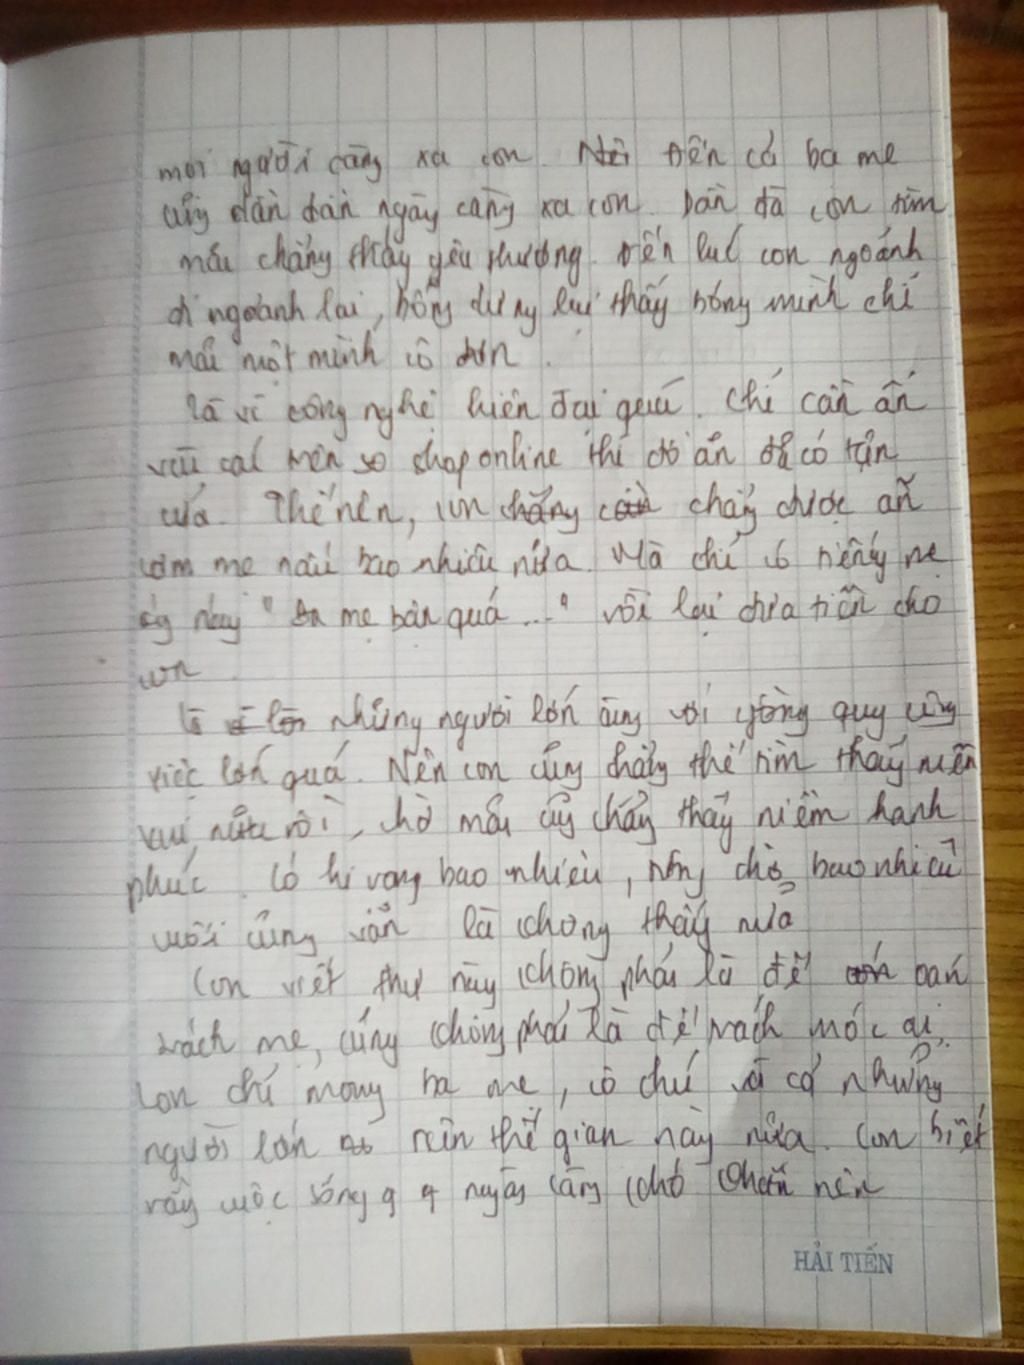 mọi người càng xa con. Đến cả ba mẹ
cũng dần dần ngày càng xa con. Dần dà con tìm
mãi chẳng thấy yêu thương. Đến lúc con ngoảnh
đi ngoảnh lại, bỗng dưng lại thấy bóng mình chỉ
mãi một mình cô đơn.
Là vì công nghệ hiện đại quá. Chỉ cần ấn
vài cái trên shop online thì đồ ăn đã có tận
cửa. Thế nên, con chẳng chẳng được ăn
cơm mẹ nấu bao nhiêu nữa. Mà chỉ có tiếng mẹ
"Ba mẹ bận quá..." rồi lại đưa tiền cho
con.
Là những người lớn cũng với vòng quy công
việc lớn quá. Nên con cũng chẳng thể tìm thấy niềm
vui nữa rồi, chờ mãi cũng chẳng thấy niềm hạnh
phúc. Có hi vọng bao nhiêu, trông chờ bao nhiêu
cuối cùng vẫn là không thấy nữa
Con viết thư này không phải là để oán
trách mẹ, cũng không phải là để trách móc ai.
Con chỉ mong ba mẹ, cô chú và cả những
người lớn trên thế gian này nữa. Con biết
rằng cuộc sống ngày càng khó khăn nên
HẢI TIẾN